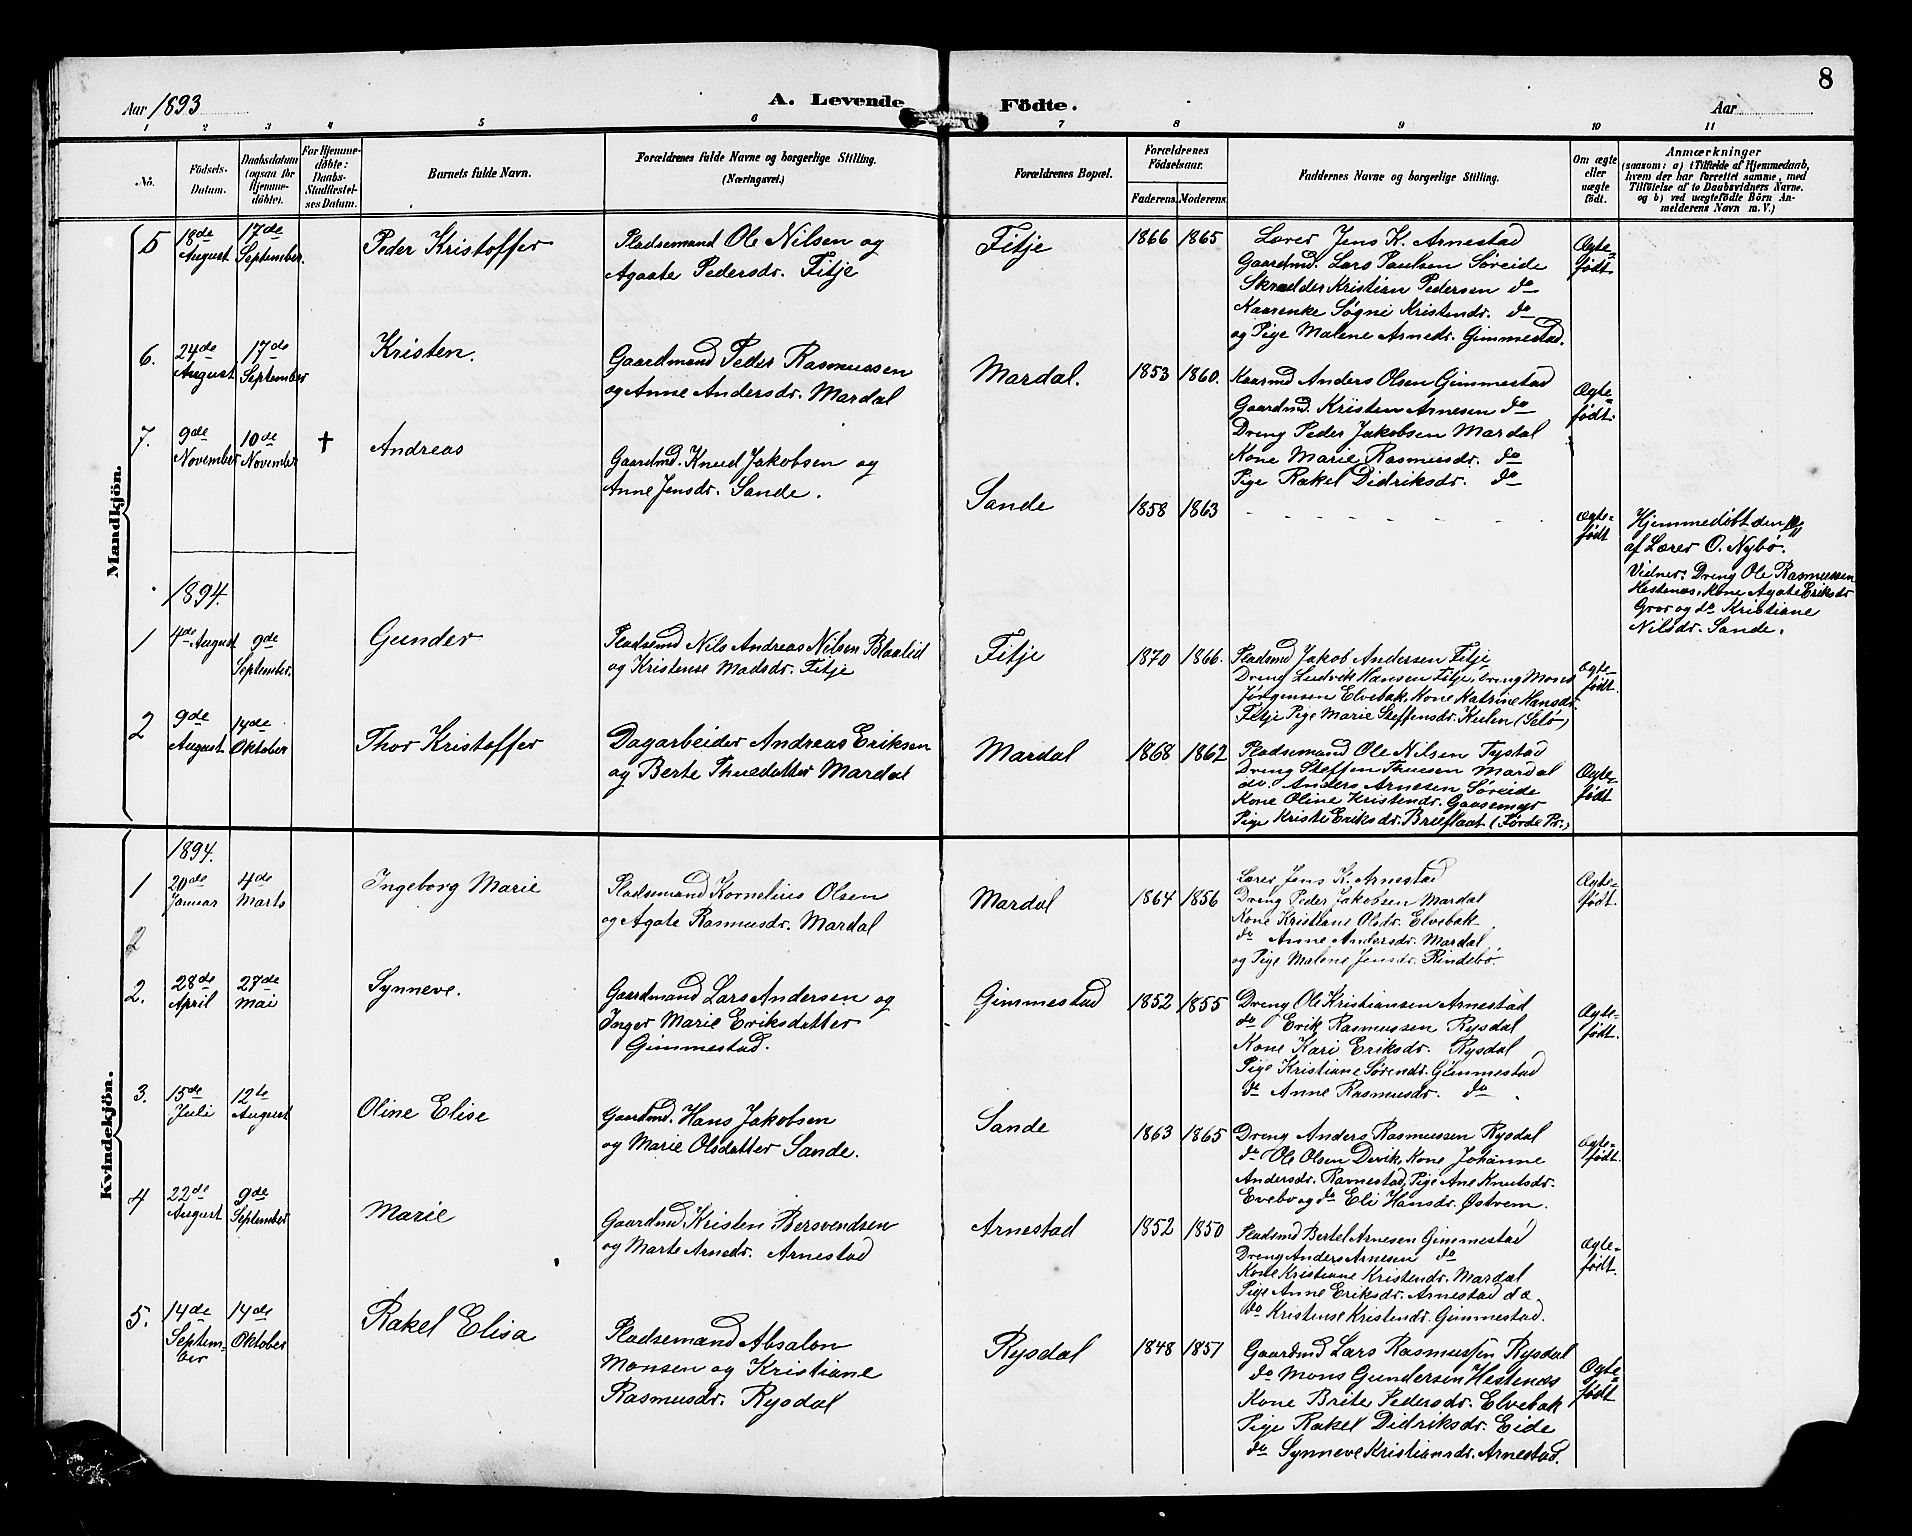 8
Aar 1893
A. Levende Födte.
Aar
1 2 3 4 5 6 7 8 9 10 11
No.
Födsels-
Datum.
Daabsdatum
(ogsaa for
Hjemme-
döbte).
For Hjemme-
döbte:
Daabs-
Stadfæstel-
ses Datum.
Barnets fulde Navn.
Forældrenes fulde Navne og borgerlige Stilling.
(Næringsvei.)
Forældrenes Bopæl.
Forældrenes
Födselsaar.
Faderens. Moderens.
Faddernes Navne og borgerlige Stilling.
Om ægte
eller
uægte
födt.
Anmærkninger
(saasom: a) i Tilfælde af Hjemmedaab,
hvem der har forrettet samme, med
Tilföielse af to Daabsvidners Navne.
og b) ved uægtefödte Börn An-
melderens Navn m. V.)
Mandkjön.
5
18de
August
17de
September.
Peder Kristoffer
Pladsemand Ole Nilsen og
Agaate Pedersdr. Fitje
Fitje
1866 1865
Lærer Jens K. Arnestad
Gaardmd. Lars Paulsen Søreide
Skrædder Kristian Pedersen do
Kaarenke Søgni Kristendr. do
og Pige Malene Arnedr. Gimmestad.
Ægte-
født.
6.
24de
August
17de
September
Kristen.
Gaardmand Peder Rasmussen
og Anne Andersdr. Mardal
Mardal.
1853 1860.
Kaarmd Anders Olsen Gimmestad
Gaardmd. Kristen Arnesen do
Dreng Peder Jakobsen Mardal
Kone Marie Rasmusdr. do
Pige Rakel Didriksdr. do
Ægte-
født.
7.
9de
November
10de
November
†
Andreas
Gaardmd. Knud Jakobsen og
Anne Jensdr. Sande.
Sande
1858 1863
- - - - - - - -
Ægte-
født
Hjemmedøbt den
af Lærer O. Nybø.
Vidner: Dreng Ole Rasmussen
Hestenæs, Kone Agate Eriksdr
Gror og do Kristiane
Nilsdr. Sande.
1894.
1
4de August
9de
September.
Gunder
Pladsemd Nils Andreas Nilsen Blaalid
og Kristense Madsdr. Fitje
Fitje
1870 1866.
Pladsmd Jakob Andersen Fitje
Dreng Ludvik Hansen Fitje, Dreng Mons
Jørgensen Elvebak, Kone Katrine Hansdr.
Fitje Pige Marie Steffensdr. Keilen (Selø)
Ægte-
født.
2
9de
August
14de
Oktober
Thor Kristoffer
Dagarbeider Andreas Eriksen
og Berte Thuedatter Mardal
Mardal
1868 1862
Pladsemand Ole Nilsen Tystad
Dreng Steffen Thuesen Mardal
do. Anders Arnesen Søreide
Kone Oline Kristendr. Gaasemyr
Pige Kristi Eriksdr. Breiflaat (Førde Pr.)
Ægte-
født
Kvindekjön.
1894.
1
20de
Januar
4de
Marts
Ingeborg Marie
Pladsemand Kornelius Olsen
og Agate Rasmusdr. Mardal
Mardal
1864 1856
Lærer Jens K. Arnestad
Dreng Peder Jakobsen Mardal
Kone Kristiane Olsdr. Elvebak
do Anne Andersdr. Mardal
og Pige Malene Jensdr. Rindebø.
Ægte-
født.
2
2.
28de
April
27de
Mai
Synneve.
Gaardmand Lars Andersen og
Inger Marie Eriksdatter
Gimmestad.
Gimmestad
1852 1855
Dreng Ole Kristiansen Arnestad
do Erik Rasmussen Rysdal
Kone Kari Eriksdr. Rysdal
Pige Kristiane Sørendr. Gimmestad
do Anne Rasmusdr. do
Ægte-
født.
3.
15de
Juli
12te
August
Oline Elise
Gaardmd. Hans Jakobsen
og Marie Olsdatter Sande.
Sande
1863 1865
Dreng Anders Rasmussen Rysdal
do Ole Olsen Devik, Kone Johanne
Andersdr. Ravnestad, Pige Ane Knutsdr.
Evebø og do Eli Hansdr. Østrem.
Ægte-
født.
4
22de
August
9de
September
Marie
Gaardmd Kristen Bersvendsen
og Marte Arnedr. Arnestad
Arnestad
1852 1850
Pladsmd Bertel Arnesen Gimmestad
Dreng Anders Arnesen do
Kone Kristiane Kristendr. Mardal
Pige Anne Eriksdr. Arnestad do
do Kristense Kristendr. Gimmestad.
Ægte-
født.
5.
14de
Septem-
ber
14de
Oktober
Rakel Elisa
Pladsemand Absalon
Monsen og Kristiane
Rasmusdr. Rysdal
Rysdal
1848 1851
Gaardmd Lars Rasmussen Rysdal
do Mons Gundersen Hestenes
Kone Brite Pedersdr. Elvebak
Pige Rakel Didriksdr. Eide
do Synneve Kristiansdr. Arnestad.
Ægte-
født